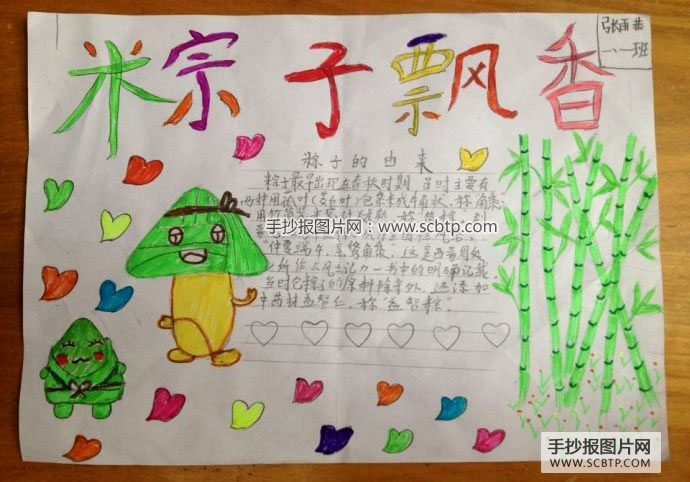 粽子飘香
张雨
一、一班
粽子的由来
粽子最早出现在春秋时期,当时主要有
两种用菰叶(茭白叶)包黍米成牛角状,称"角黍";
手抄报图片网:www.scbtp.com
"仲夏端午,烹鹜角黍。"这是西晋周处
一书中的明确记载,
当时包粽子的原料除米外,还添加
中药材益智仁,称"益智粽"。
手抄报图片网
WWW.SCBTP.COM